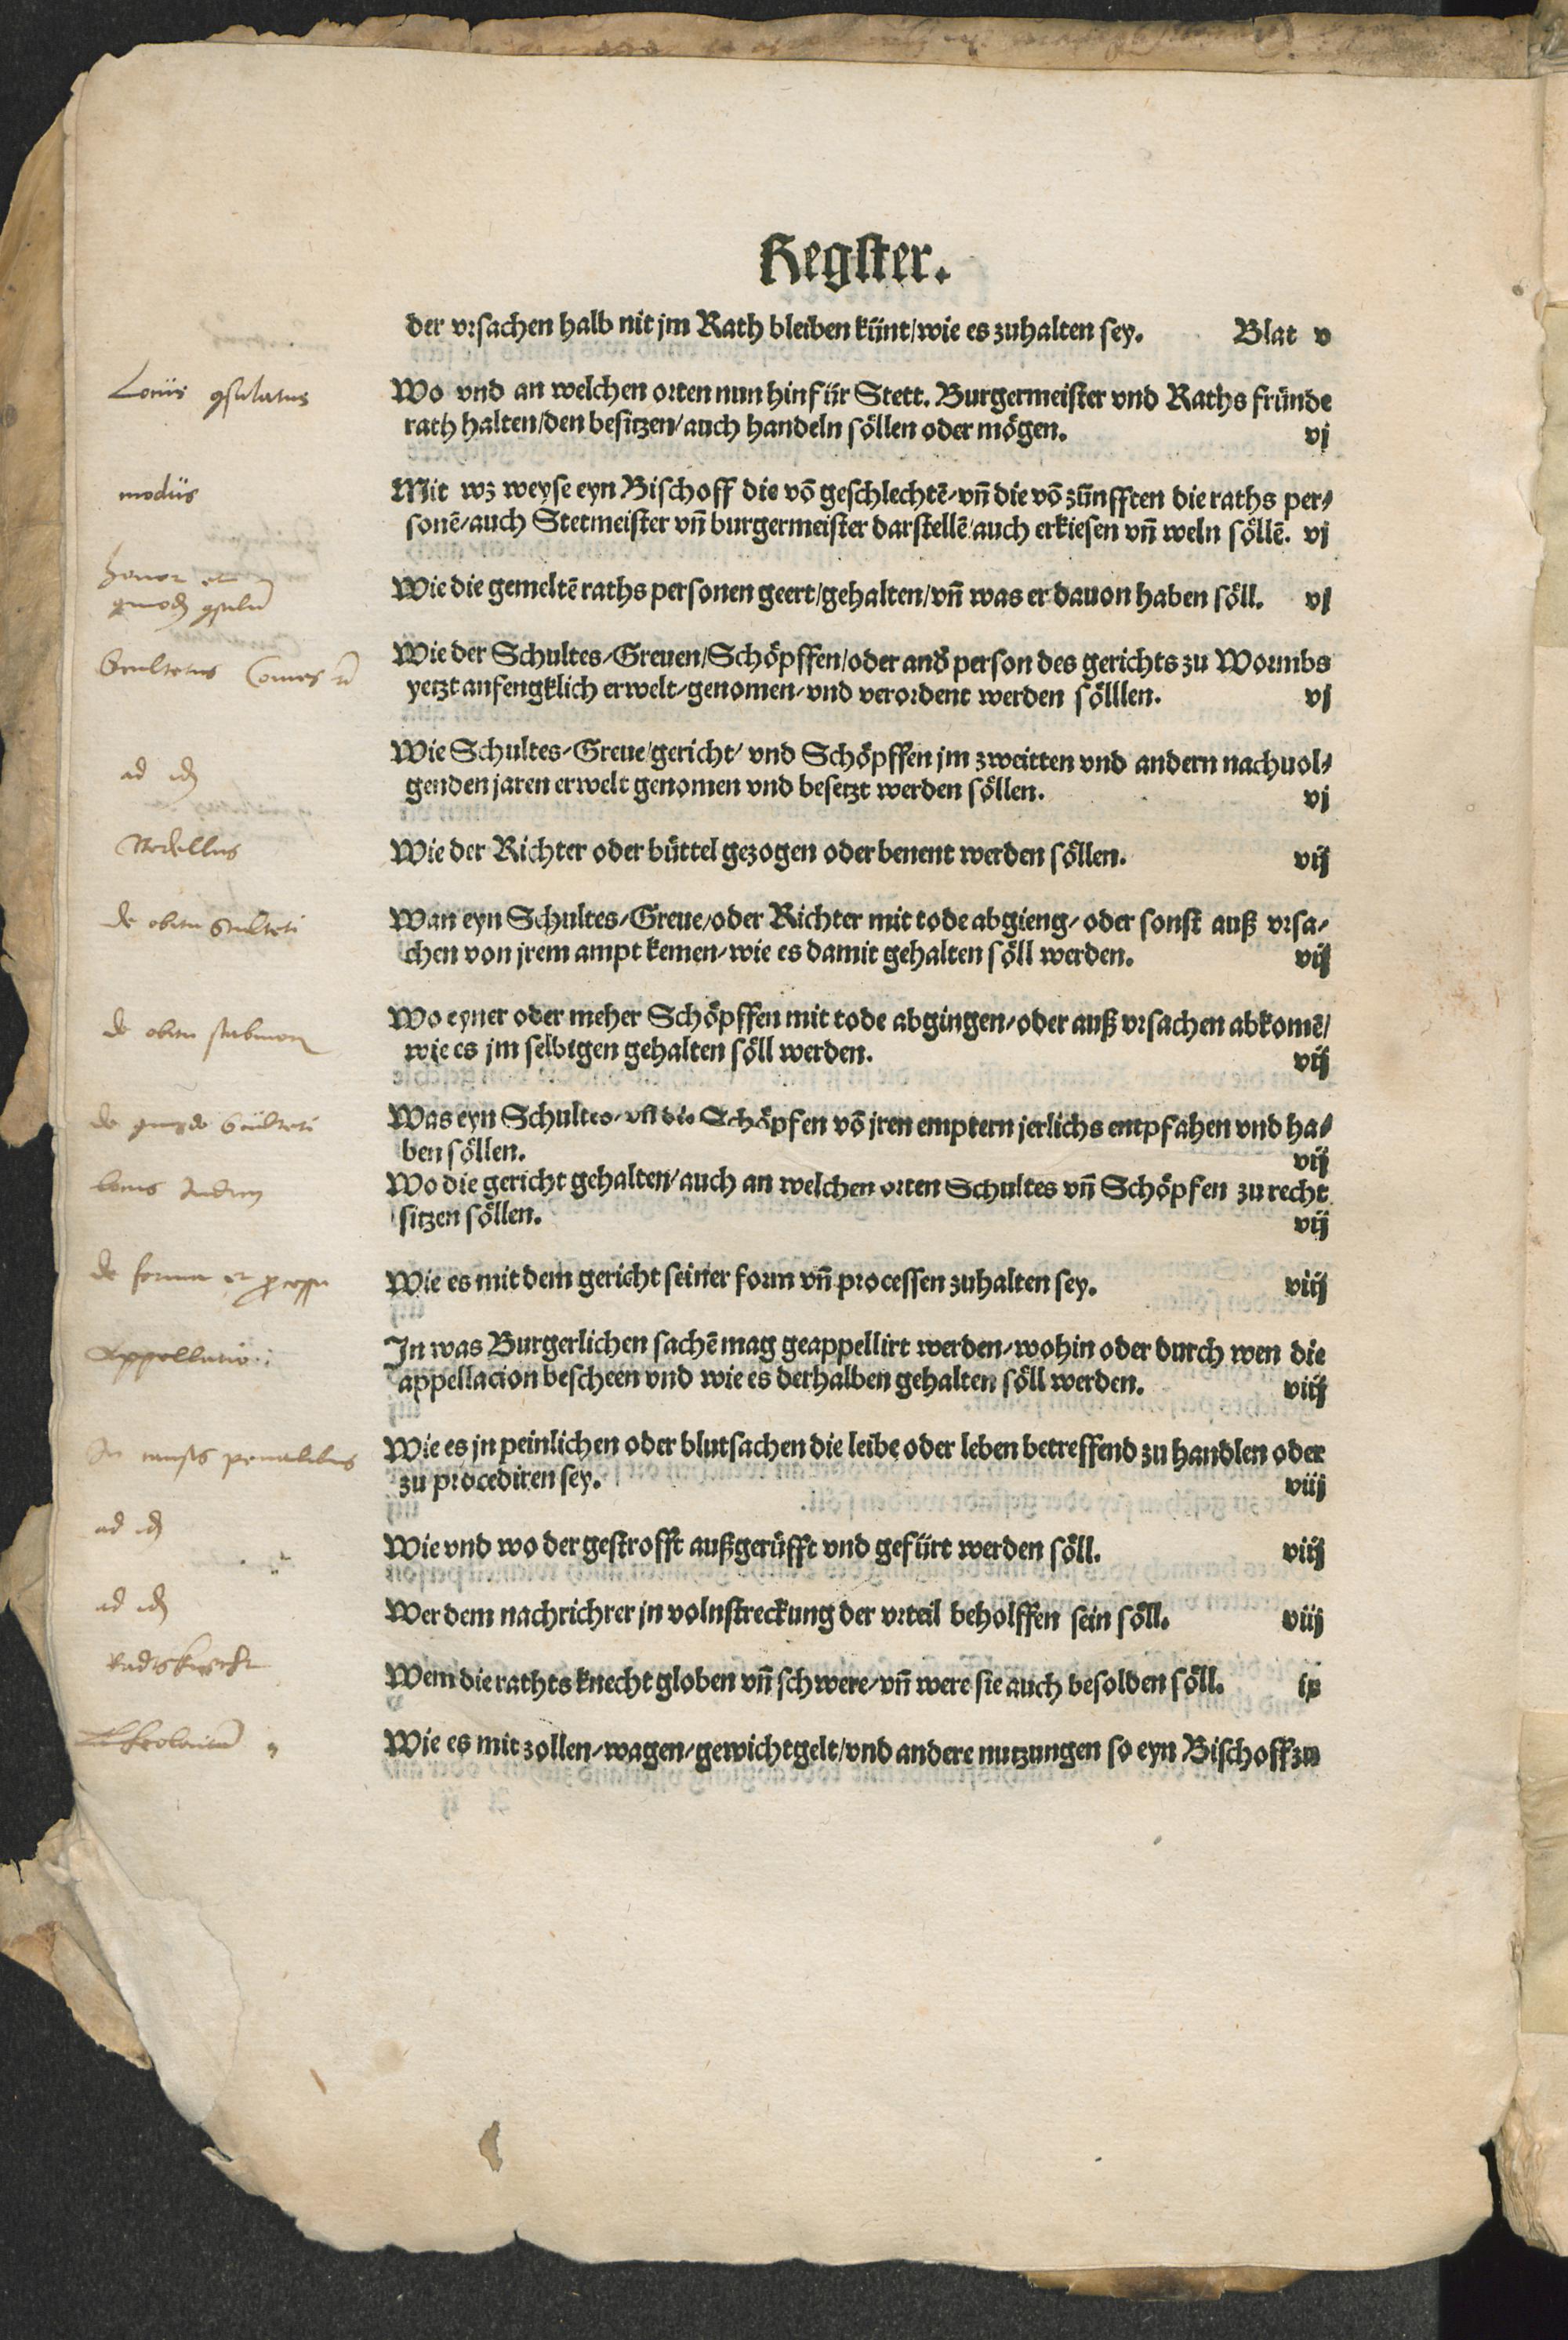 Regſter.
der vrsachen halb nit jm Rath bleiben künt/wie es zuhalten sey. Blat v
Locus consulatus
Wo vnd an welchen orten nun hinfür Stett. Burgermeister vnd Raths fründe
rath halten/den besitzen/auch handeln söllen oder mögen. vj
modus
Mit wz weyse eyn Bischoff die võ geschlechtẽ/vñ die võ zünfften die raths per/
sonẽ/auch Stetmeister vñ burgermeister darstellẽ/auch erkiesen vñ weln söllẽ. vj
honor et
Wie die gemeltẽ raths personen geert/gehalten/vñ was er dauon haben söll. vj
Scultetus Comes
Wie der Schultes/Greuen/Schöpffen/oder and̄ person des gerichts zu Wormbs
yetzt anfengklich erwelt/genomen/vnd verordent werden sölllen. vj
ad id
Wie Schultes/Greue/gericht/ vnd Schöpffen jm zweitten vnd andern nachuol/
genden jaren erwelt genomen vnd besetzt werden söllen. vj
Bedellus
Wie der Richter oder büttel gezogen oder benent werden söllen. vij
de obitu Sculteti
Wan eyn Schultes/Greue/oder Richter mit tode abgieng/ oder sonst auß vrsa/
chen von jrem ampt kemen/wie es damit gehalten söll werden. vij
de obitu scabinorum
Wo eyner oder meher Schöpffen mit tode abgingen/oder auß vrsachen abkomẽ/
wie es jm selbigen gehalten söll werden. vij
Was eyn Schultes/vñ die Schöpfen võ jren emptern jerlichs empfahen vnd ha/
ben söllen. vij
Wo die gericht gehalten/auch an welchen orten Schultes vñ Schöpfen zu recht
sitzen söllen. vij
de forma et processu
Wie es mit dem gericht seiner form vñ processen zuhalten sey. viij
Appellatio
In was Burgerlichen sachẽ mag geappellirt werden/wohin oder durch wen die
appellacion bescheen vnd wie es derhalben gehalten söll werden. viij
In causis penalibus
Wie es jn peinlichen oder blutsachen die leibe oder leben betreffend zu handlen oder
zu procediren sey. viij
ad id
Wie vnd wo der gestrofft außgerüfft vnd gefürt werden söll. viij
ad id
Wer dem nachrichrer jn volnstreckung der vrteil beholffen sein söll. viij
radtsknecht
Wem die rathts knecht globen vñ schwere/vñ were sie auch besolden söll. ix
Wie es mit zollen/wagen/gewichtgelt/vnd andere nutzungen so eyn Bischoff zu